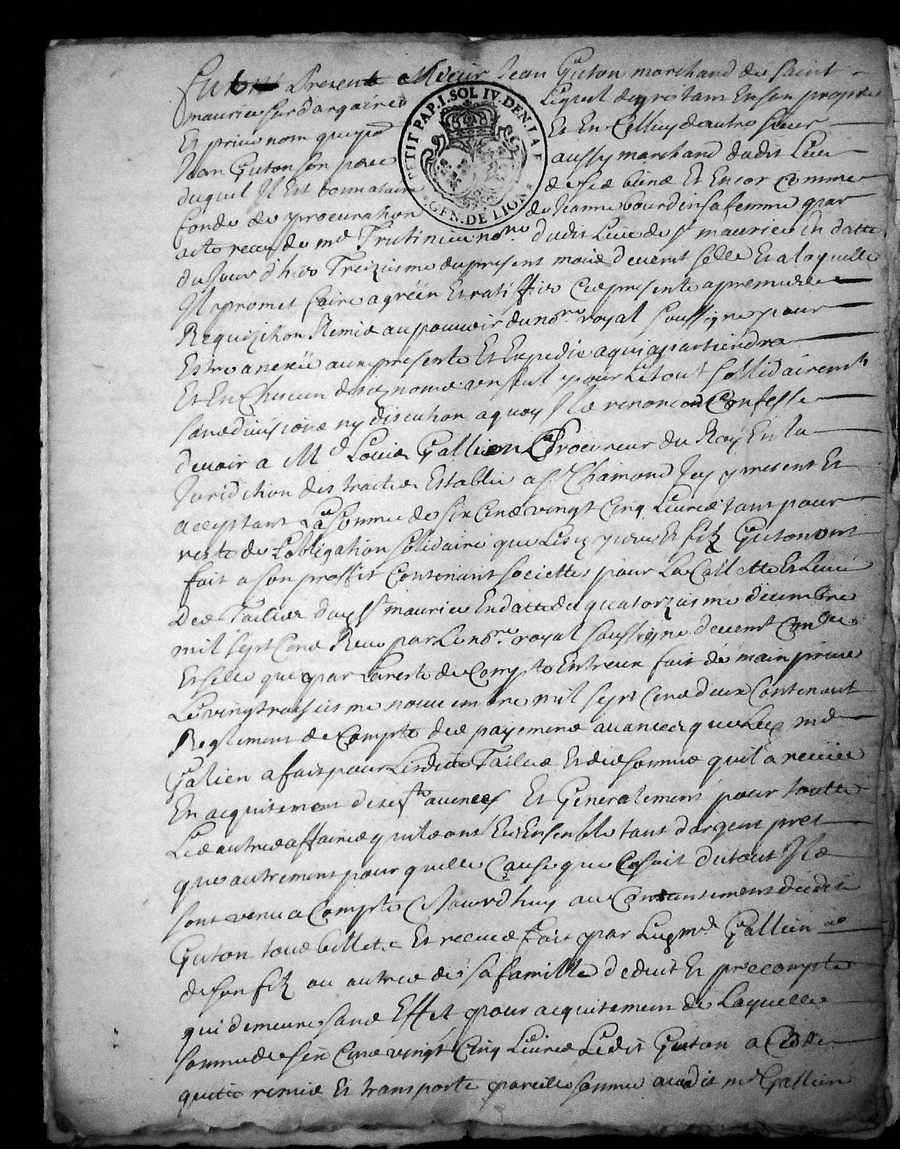 Fut Present Mr Sieur Jean Guton marchand de Saint
maurice sur dargoire Lequel de gré tant en son propre
Et privé nom que Et En Celluy de autre sieur
Jean Guton son pere aussy marchand dudit Lieu
duquel Il Est donnataire de ses biens Et Encor Comme
fondé de procuration de Jeanne bourdin sa femme par
acte receu de me Nore dudit Lieu de St maurice En datte
du Jour d'hier Treizieme du present mois devenet Selle Et a laquelle
Il promet faire agréer Et ratiffier Ces presente a premiere
Requizition Remis au pouvoir du nore royal soussigné pour
Estre anexé aux presente Et Expedié a qui apartiendra
Et En Chacun desd noms un seul pour Le tout sollidairemt
sans divisions ny discution a quoy Il a renoncé Confesse
devoir a Me Louis Gallien Procureur du Roy En la
Juridition des traites Establie a St Chamond Icy present Et
acceptant La somme de six Cens vingt Cinq Livres tant pour
reste de L'obligation sollidaire que Lesd peres Et filz Guton ont
fait a son proffit Contenant societtes pour La Collette Et Levée
Des Tailles dud St maurice En datte du quatorzieme decembre
mil sept Cens Receu par Le nore royal soussigné devenet
Et selle que par L'areste de Compte Entreux fait de main privée
Le vingtroisieme novembre mil sept Cens deux Contenant
Reglement de Compte des payemens avances que Led me
Galien a fait pour Lesdites Tailles Et des sommes qu'il a receues
En acquitement desd avences Et Generalement pour toutte
Les autres affaires quils ont Eu Ensemble tant d'argent pret
que autrement pour quelle Cause que Ce soit du tout Ils
sont venu a Compte Ce Jourd'huy au Contentement desdits
Guton tous billets Et receus fait par Led me Gallien
de son filz ou autres de sa famille deduit Et precompte
qui demeure sans Effet pour acquitement de Laquelle
somme de six Cens vingt Cinq Livres Ledit Guton a Cédé
quitté remis Et transporté pareille somme audit me Gallien
PETIT PAP. I. SOL IV. DEN. LA F
GEN. DE LION